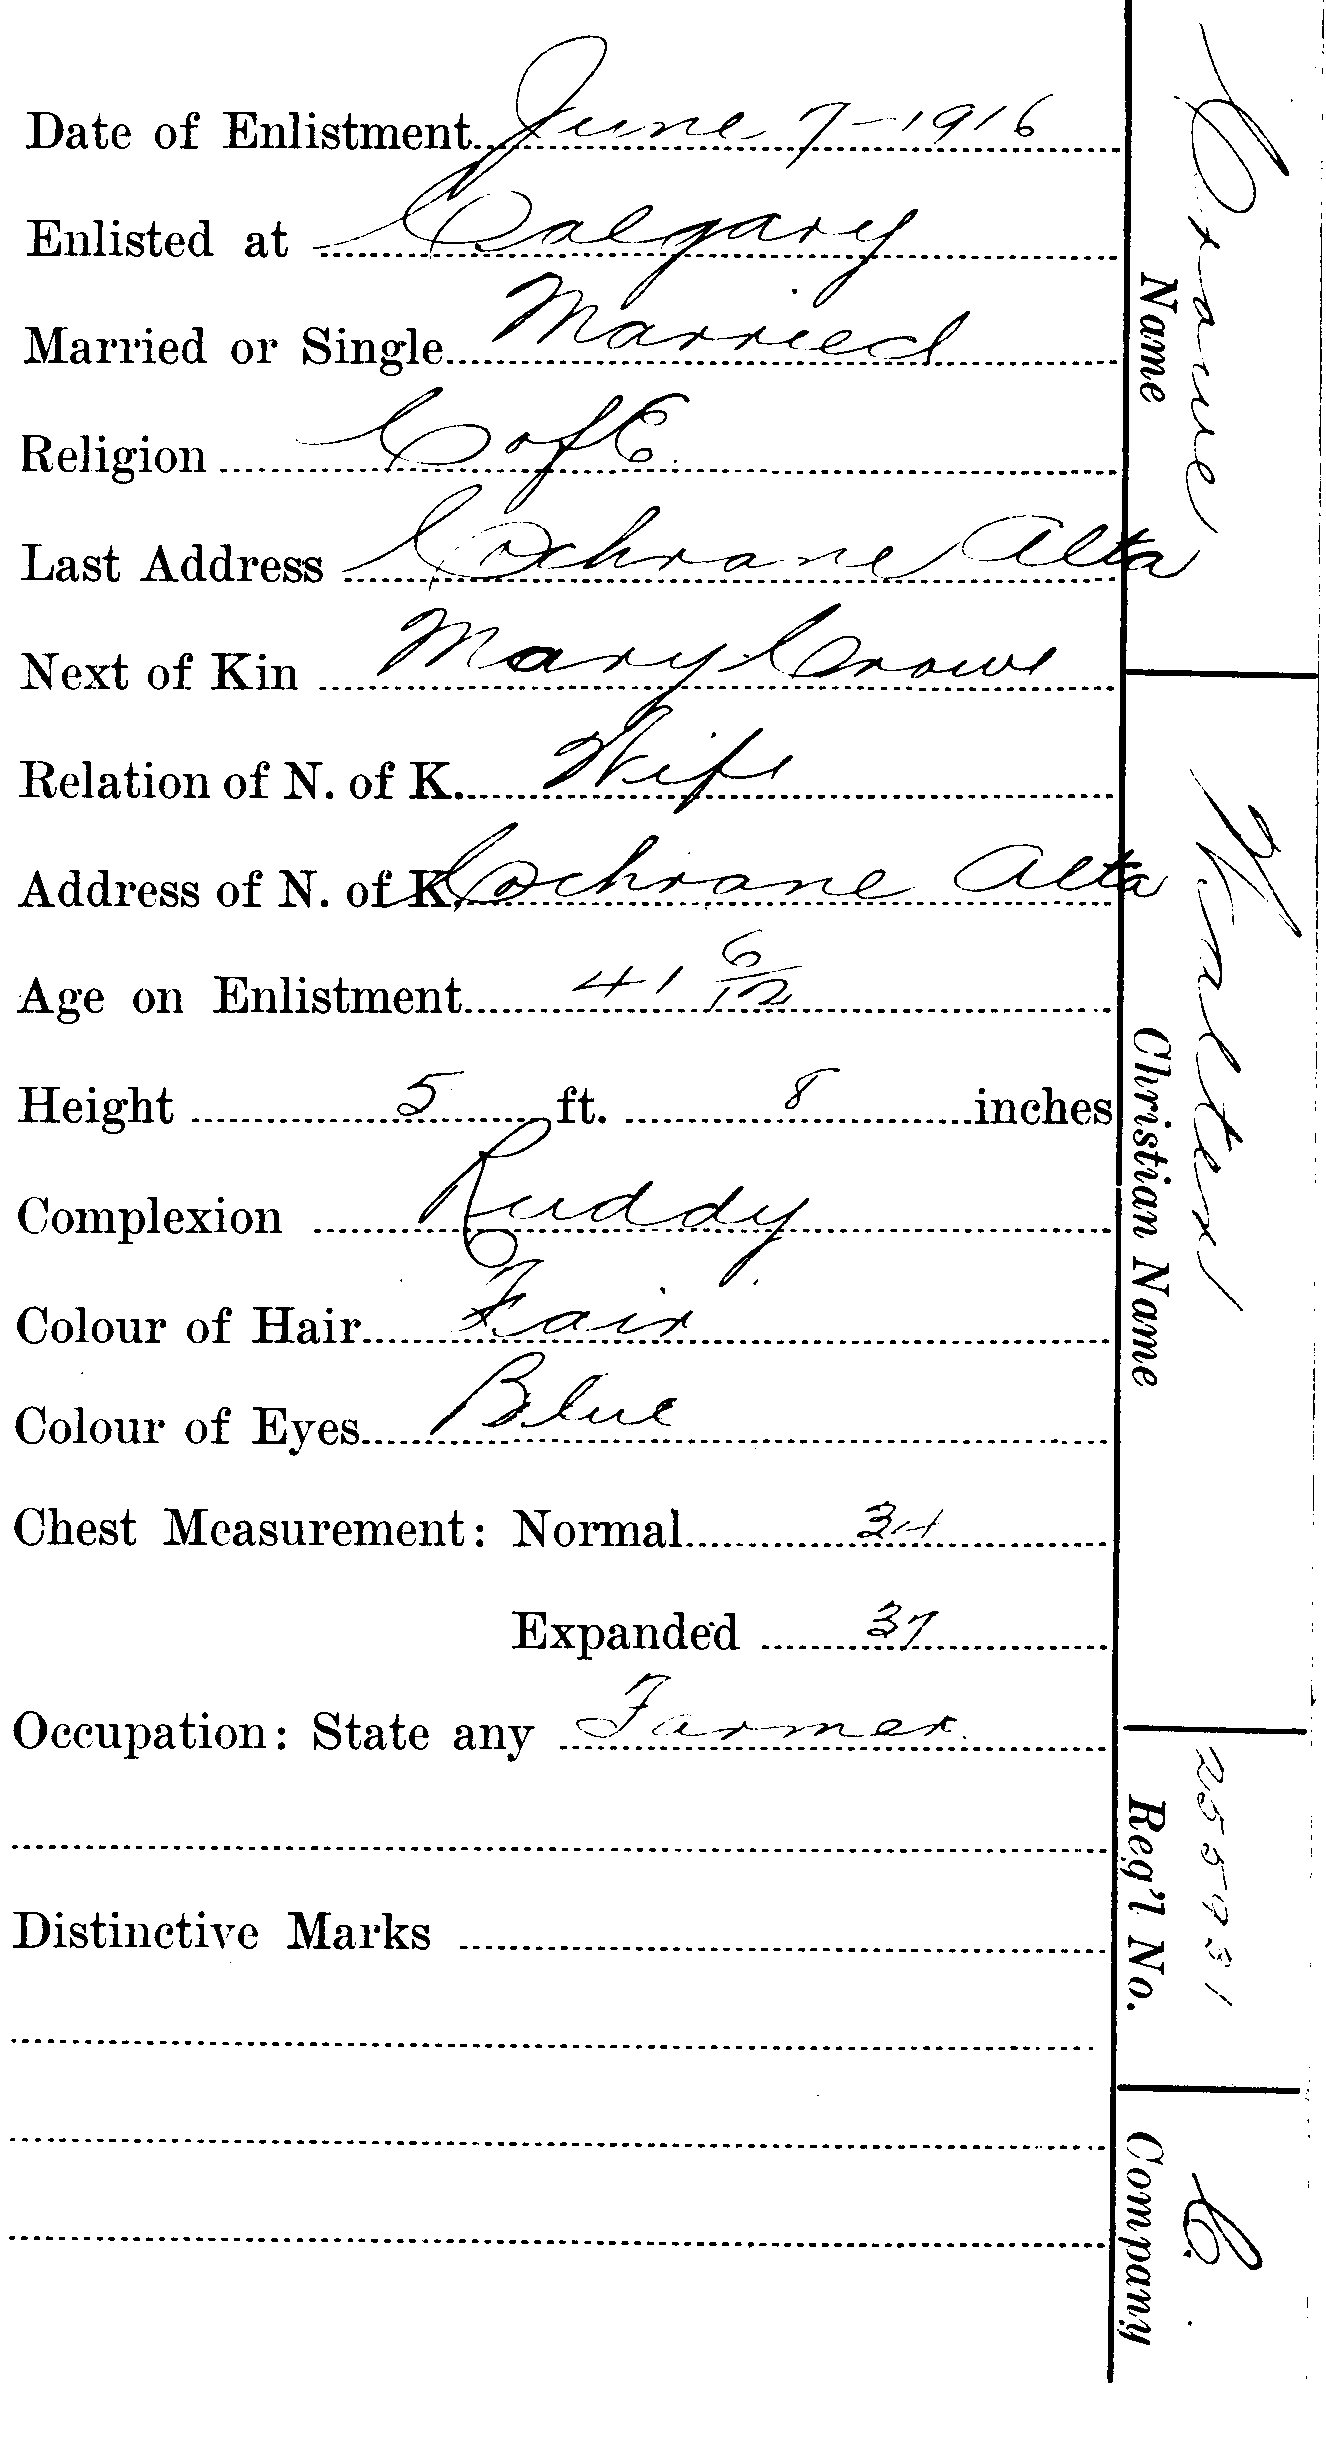 Date of Enlistment June 7-1916
Enlisted at Calgary
Married or Single Married
Religion C of E.
Last Address Cochrane Alta
Next of Kin Mary Crowe
Relation of N. of K. Wife
Address of N. of K. Cochrane Alta
Age on Enlistment 41 6/12
Height 5 ft. 8 inches
Complexion Ruddy
Colour of Hair Fair
Colour of Eyes Blue
Chest Measurement: Normal 34
Expanded 37
Occupation: State any Farmer
Distinctive Marks
Name
Christian Name Walter
Reg'l No. 255931
Company C.